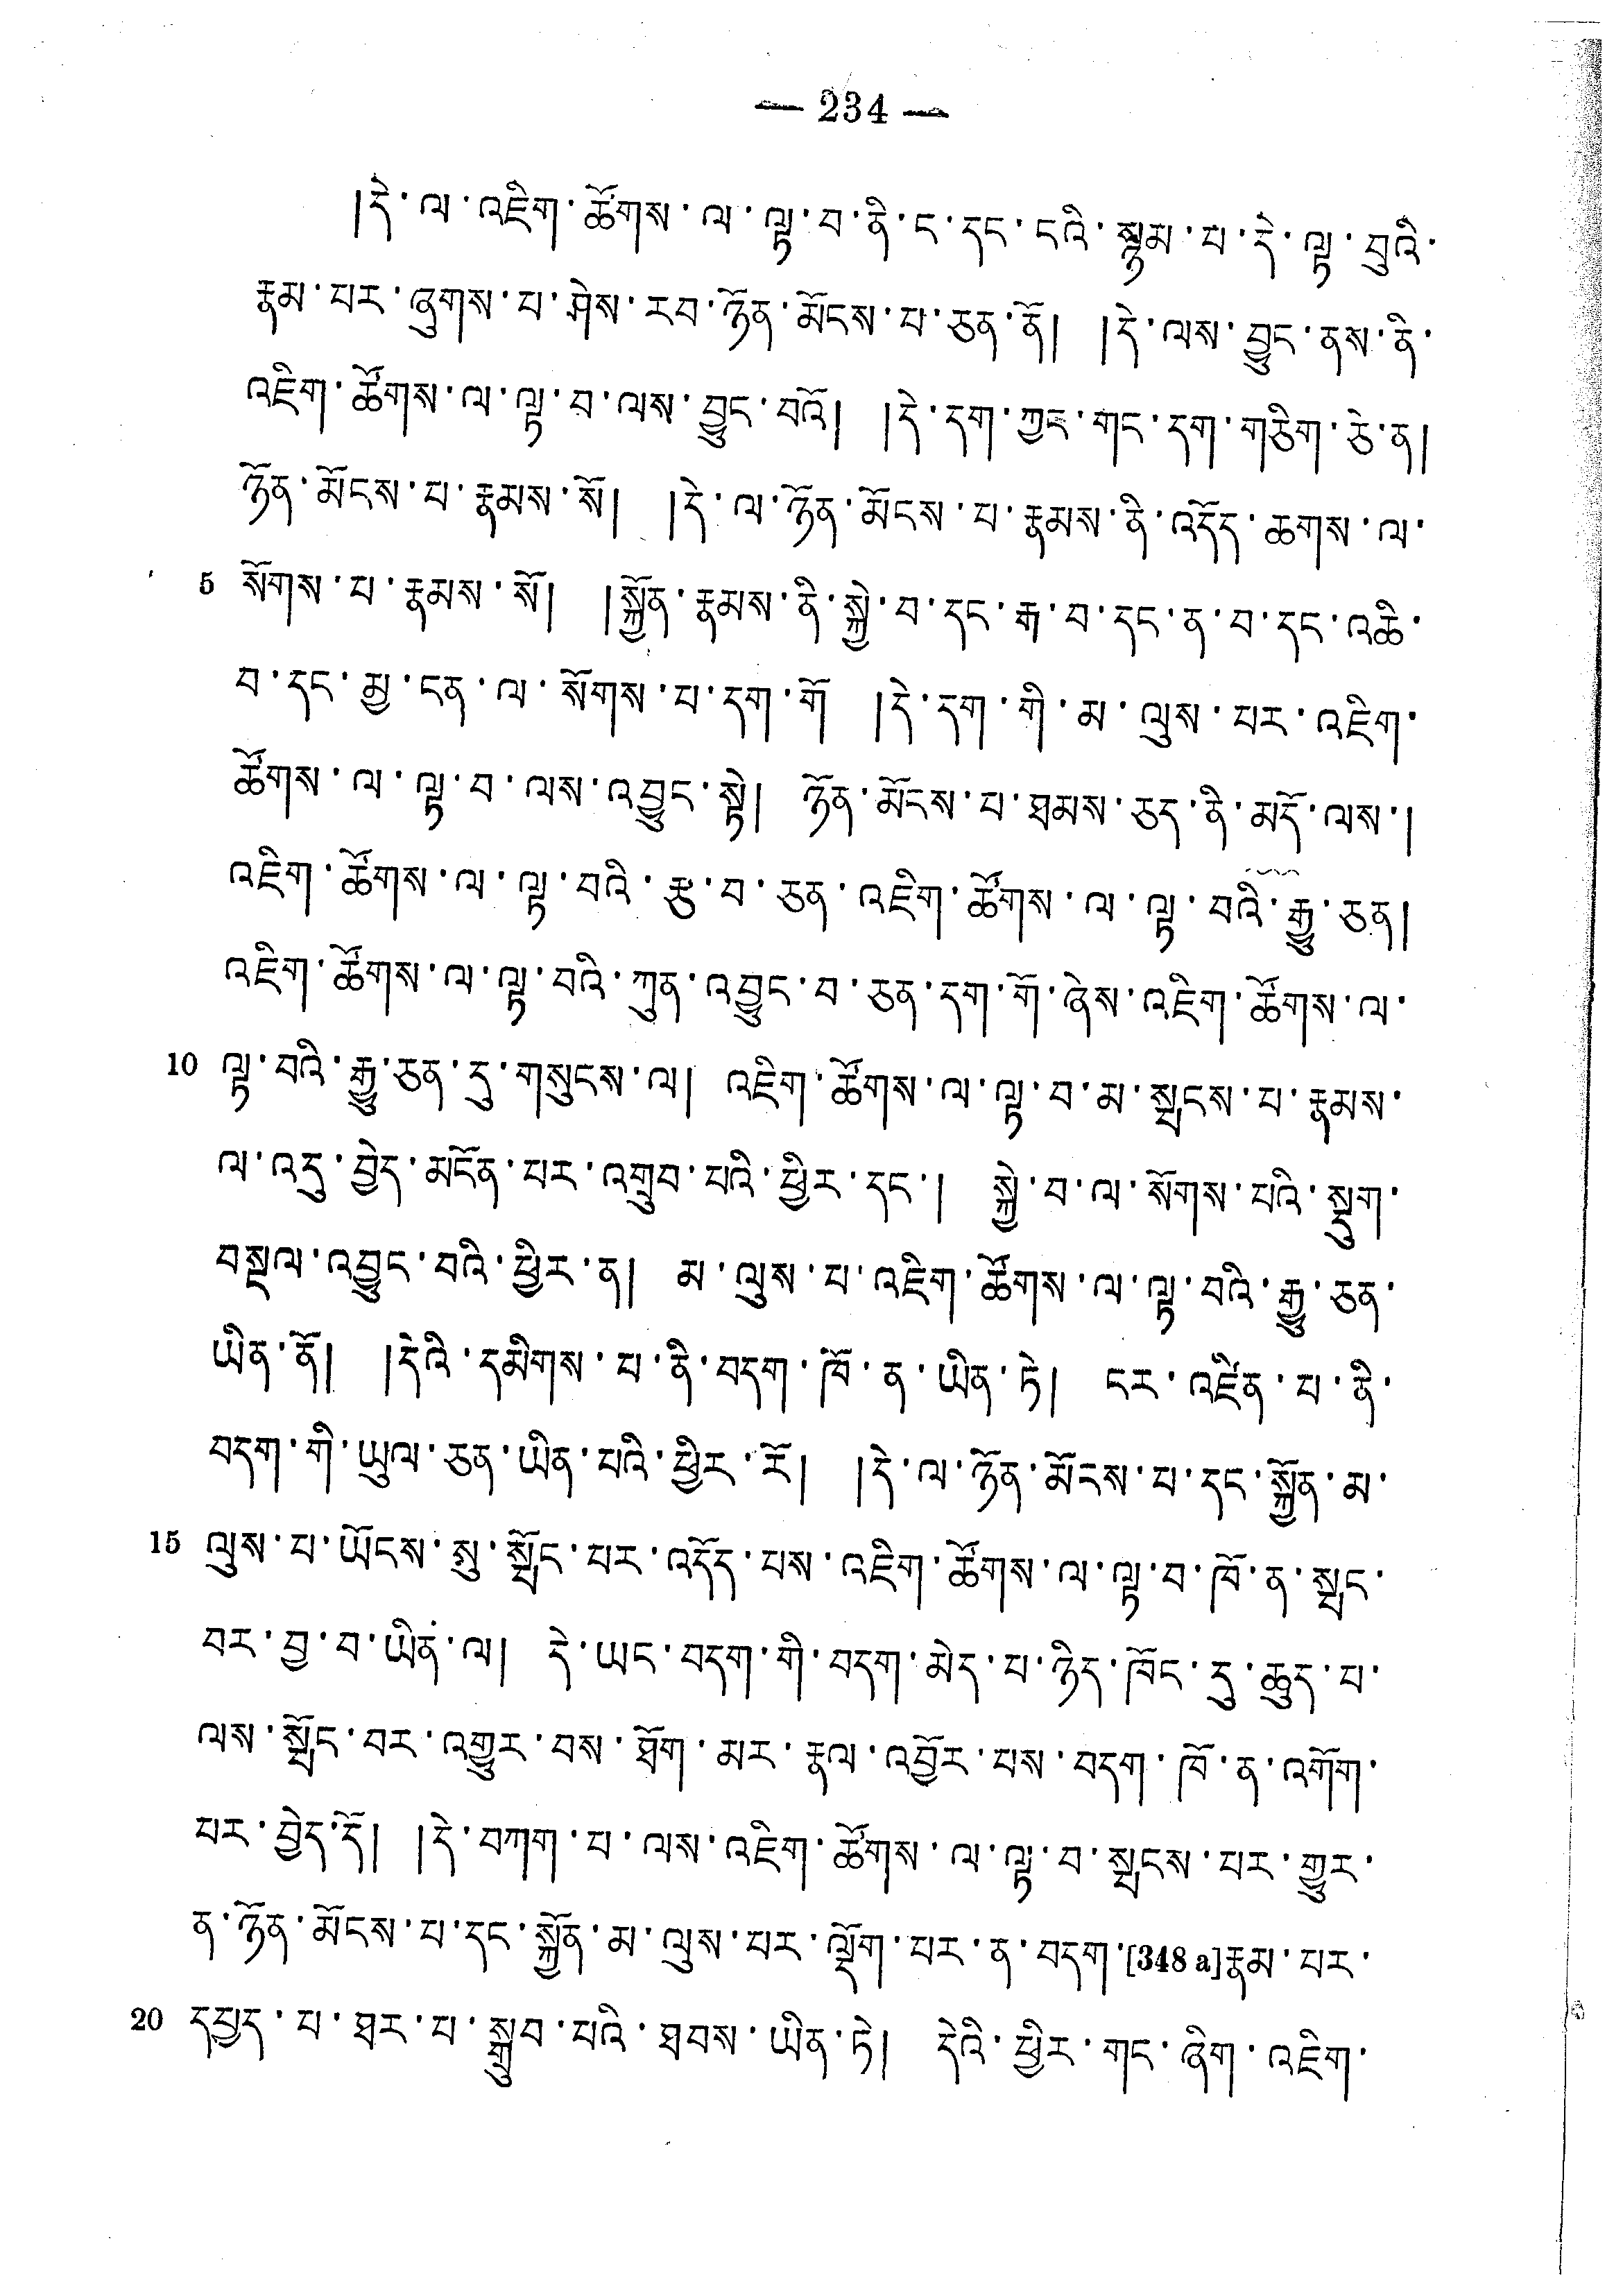 — 234 —
།དེ་ལ་འཇིག་ཚོགས་ལ་ལྟ་བ་ནི་ང་དང་ངའི་སྙམ་པ་དེ་ལྟ་བུའི་
རྣམ་པར་ཞུགས་པ་ཤེས་རབ་ཉོན་མོངས་པ་ཅན་ནོ། །དེ་ལས་བྱུང་ནས་ནི་
འཇིག་ཚོགས་ལ་ལྟ་བ་ལས་བྱུང་བའོ། །དེ་དག་ཀྱང་གང་དག་གཅིག་ཅེ་ན།
ཉོན་མོངས་པ་རྣམས་སོ། །དེ་ལ་ཉོན་མོངས་པ་རྣམས་ནི་འདོད་ཆགས་ལ་
5 སོགས་པ་རྣམས་སོ། །སྐྱོན་རྣམས་ནི་སྐྱེ་བ་དང་རྒ་བ་དང་ན་བ་དང་འཆི་
བ་དང་མྱ་ངན་ལ་སོགས་པ་དག་གོ །དེ་དག་གི་མ་ལུས་པར་འཇིག་
ཚོགས་ལ་ལྟ་བ་ལས་འབྱུང་སྟེ། ཉོན་མོངས་པ་ཐམས་ཅད་ནི་མདོ་ལས་།
འཇིག་ཚོགས་ལ་ལྟ་བའི་རྩ་བ་ཅན་འཇིག་ཚོགས་ལ་ལྟ་བའི་རྒྱུ་ཅན།
འཇིག་ཚོགས་ལ་ལྟ་བའི་ཀུན་འབྱུང་བ་ཅན་དག་གོ་ཞེས་འཇིག་ཚོགས་ལ་
10 ལྟ་བའི་རྒྱུ་ཅན་དུ་གསུངས་ལ། འཇིག་ཚོགས་ལ་ལྟ་བ་མ་སྤངས་པ་རྣམས་
ལ་འདུ་བྱེད་མངོན་པར་འགྲུབ་པའི་ཕྱིར་དང་། སྐྱེ་བ་ལ་སོགས་པའི་སྡུག་
བསྔལ་འབྱུང་བའི་ཕྱིར་ན། མ་ལུས་པ་འཇིག་ཚོགས་ལ་ལྟ་བའི་རྒྱུ་ཅན་
ཡིན་ནོ། །དེའི་དམིགས་པ་ནི་བདག་ཁོ་ན་ཡིན་ཏེ། ངར་འཛིན་པ་ནི་
བདག་གི་ཡུལ་ཅན་ཡིན་པའི་ཕྱིར་རོ། །དེ་ལ་ཉོན་མོངས་པ་དང་སྐྱོན་མ་
15 ལུས་པ་ཡོངས་སུ་སྤོང་པར་འདོད་པས་འཇིག་ཚོགས་ལ་ལྟ་བ་ཁོ་ན་སྤང་
བར་བྱ་བ་ཡིན་ལ། དེ་ཡང་བདག་གི་བདག་མེད་པ་ཉིད་ཁོང་དུ་ཆུད་པ་
ལས་སྤོང་བར་འགྱུར་བས་ཐོག་མར་རྣལ་འབྱོར་པས་བདག་ཁོ་ན་འགོག་
པར་བྱེད་དོ། །དེ་བཀག་པ་ལས་འཇིག་ཚོགས་ལ་ལྟ་བ་སྤངས་པར་གྱུར་
ན་ཉོན་མོངས་པ་དང་སྐྱོན་མ་ལུས་པར་ལྡོག་པར་ན་བདག་[348 a]རྣམ་པར་
20 དཔྱད་པ་ཐར་པ་སྒྲུབ་པའི་ཐབས་ཡིན་ཏེ། དེའི་ཕྱིར་གང་ཞིག་འཇིག་